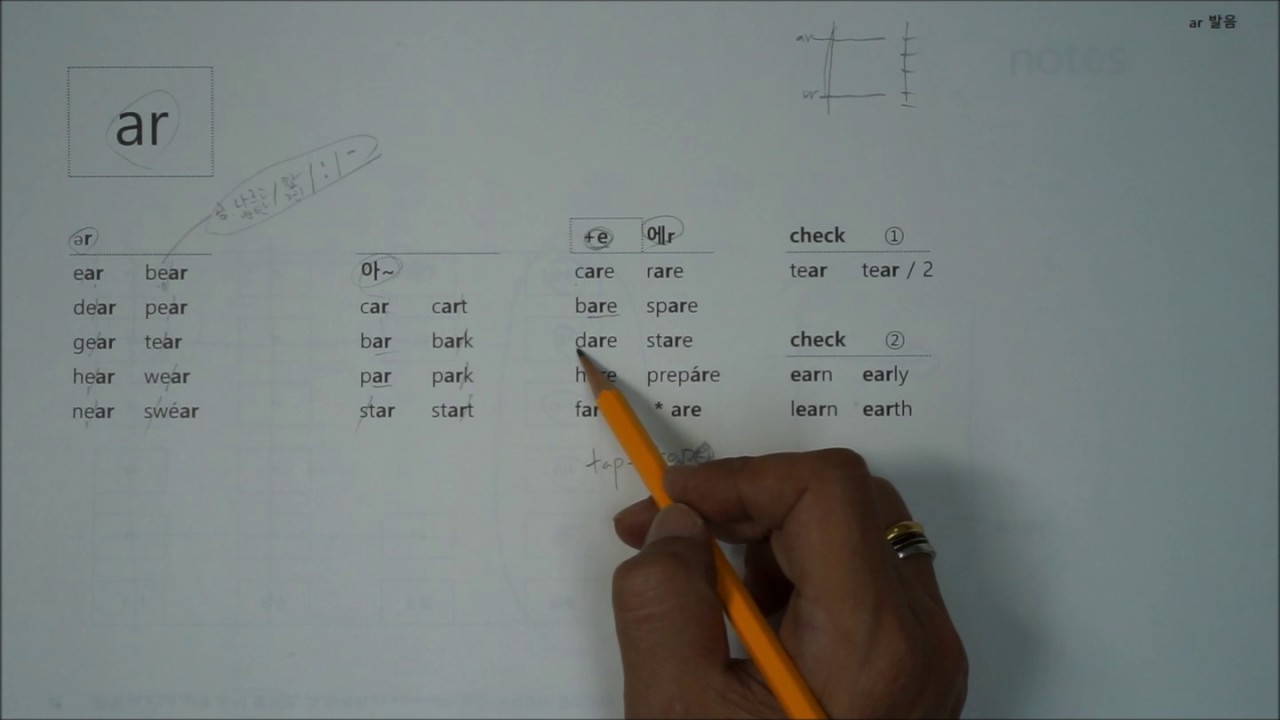 ar 발음
ar
ər
ear bear
dear pear
gear tear
hear wear
near swéar
아~
car cart
bar bark
par park
star start
+e 에r
care rare
bare spare
dare stare
prepáre
* are
check ①
tear tear / 2
check ②
earn early
learn earth